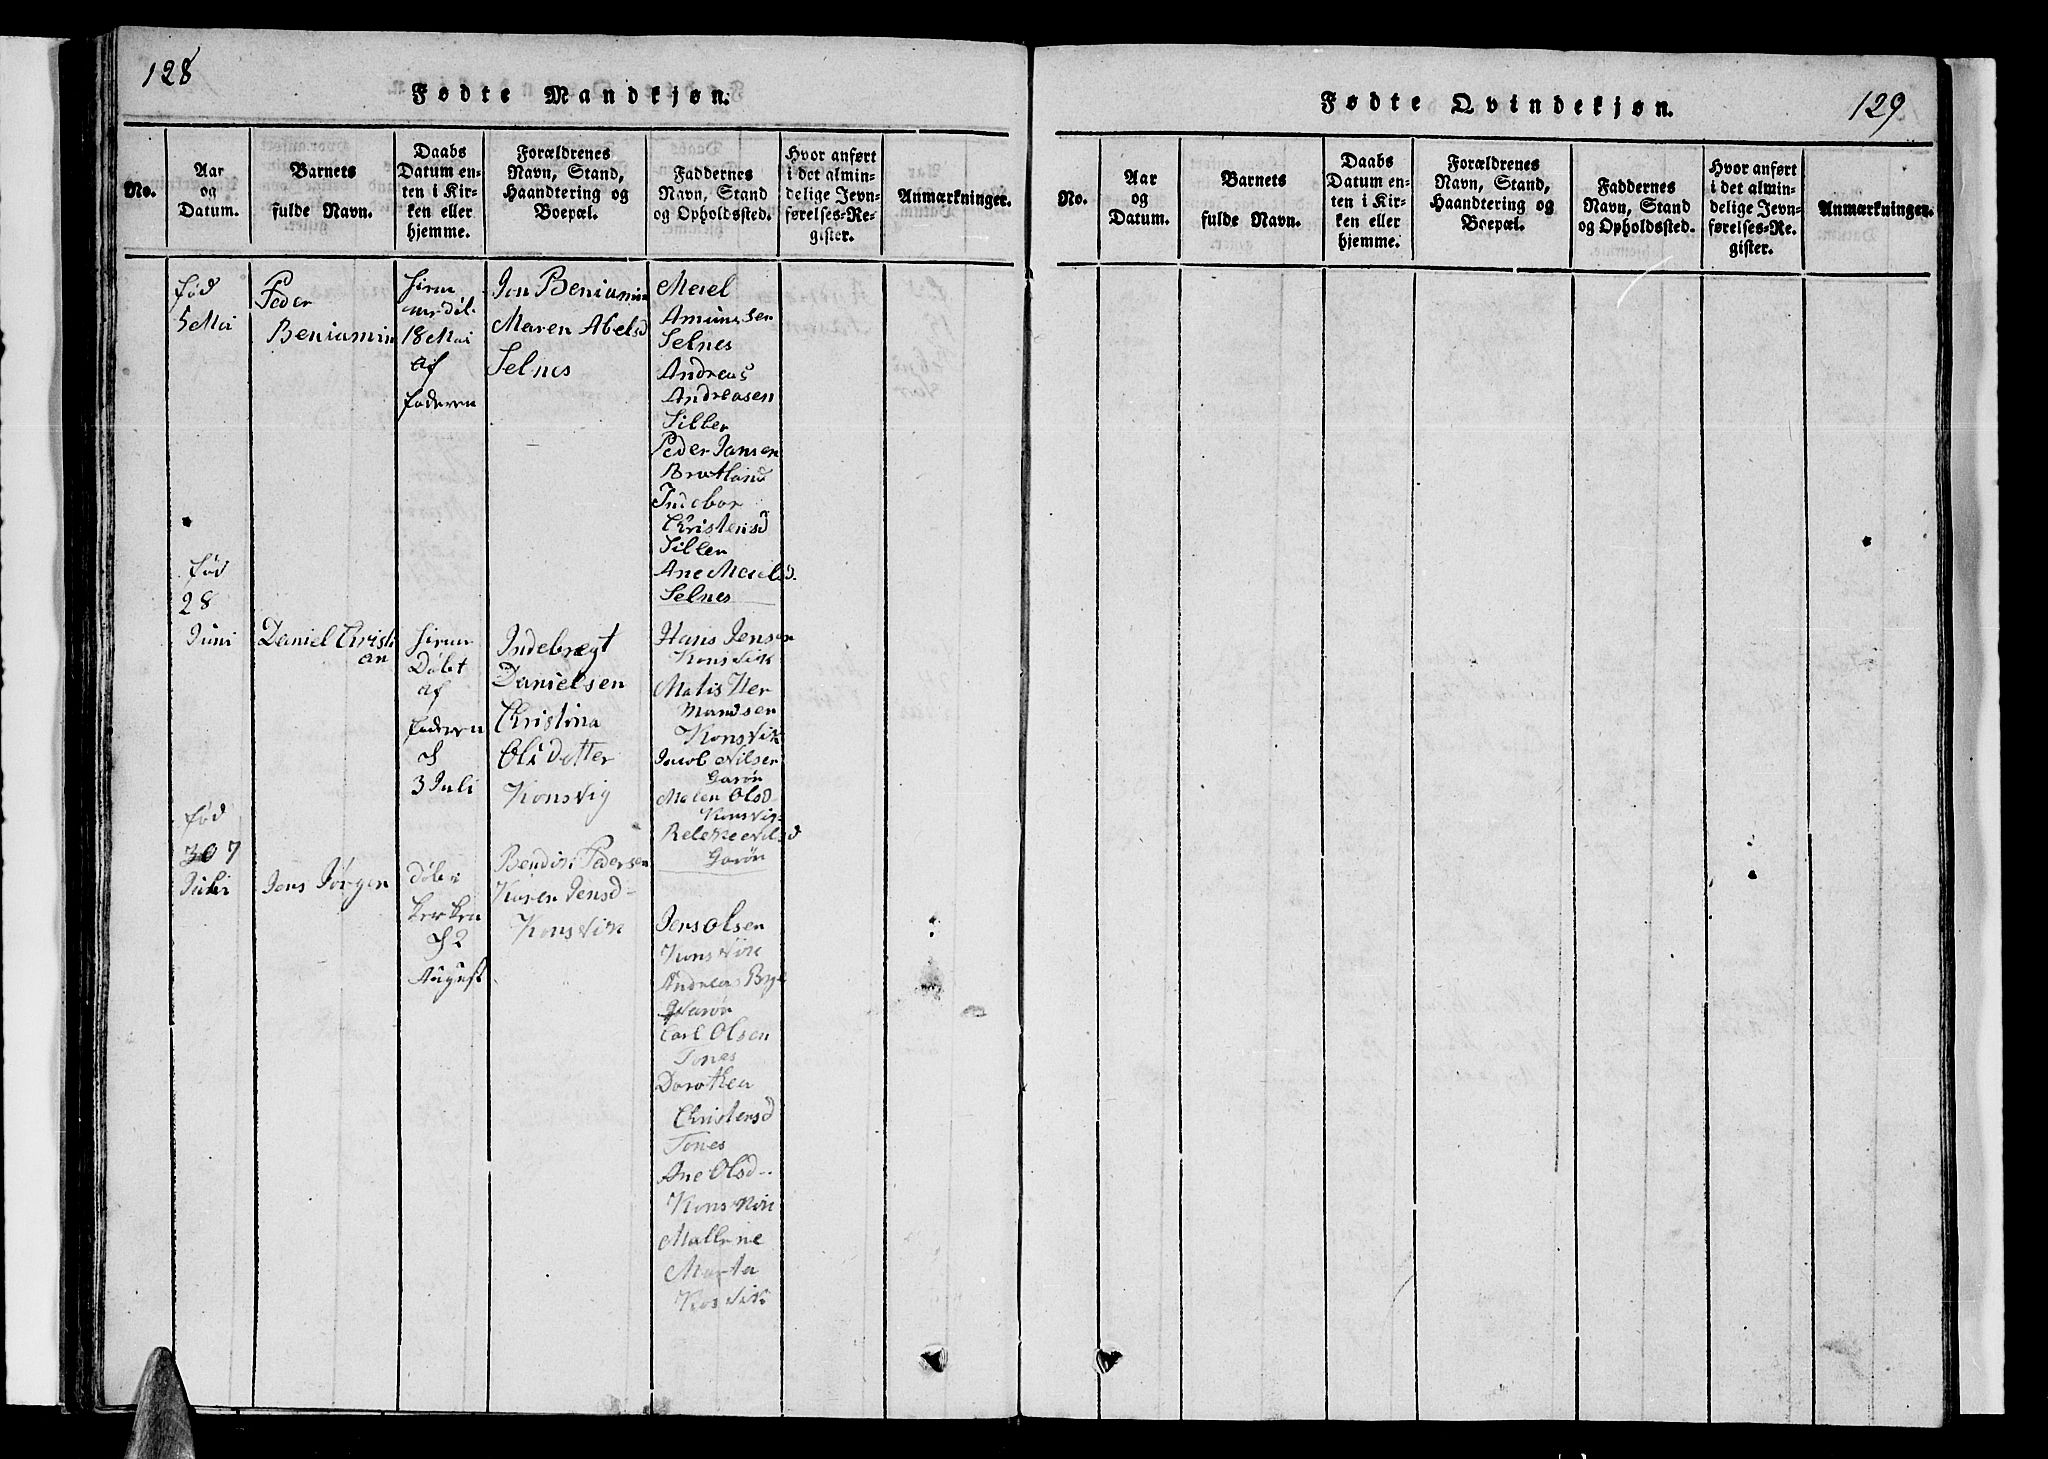 128
Fødte Mandkjøn.
No.
Aar
og
Datum.
Barnets
fulde Navn.
Daabs
Datum en-
ten i Kir-
ken eller
hjemme.
Forældrenes
Navn, Stand,
Haandtering og
Boepæl.
Faddernes
Navn, Stand
og Opholdssted.
Hvor anført
i det almin-
delige Jevn-
førelses-Re-
gister.
Anmærkninger.
fød
5 Mai
Peder
Beniamin
18 Mai
af
faderen
Jon Beniamin
Maren Abelsd
Selnes
Meiel
Amunsen
Selnes
Andreas
Andreasen
Siller
Peder Jansen
Bratland
Indebor
Christensd
Siller
Ane Meielsd.
Selnes
fød
28
Juni
Daniel Christi
an
Døbt
af
faderen
3 Juli
Indebregt
Danielsen
Christina
Olsdotter
Konsvig
Hans Jensen
Konsvik
Matis Her
mandsen
Konsvik
Jacob Nilsen
Garøn
Malen Olsd
Konsvig
Garøn
fød
30 7
Juli
Jens Jørgen
Døbt
kerken
2
August
Pedersen
Karen Jensd-
Konsvik
Jens Olsen
Konsvik
Andreas
Carl Olsen
Tones
Dorothea
Christensd
Tones
Ane Olsd-
Konsvik
Mallene
Marta
Konsvik
Fødte Qvindekjøn.
129
No.
Aar
og
Datum.
Barnets
fulde Navn.
Daabs
Datum en-
ten i Kir-
ken eller
hjemme.
Forældrenes
Navn, Stand,
Haandtering og
Boepæl.
Faddernes
Navn, Stand
og Opholdssted.
Hvor anført
i det almin-
delige Jevn-
førelses-Re-
gister.
Anmærkninger.